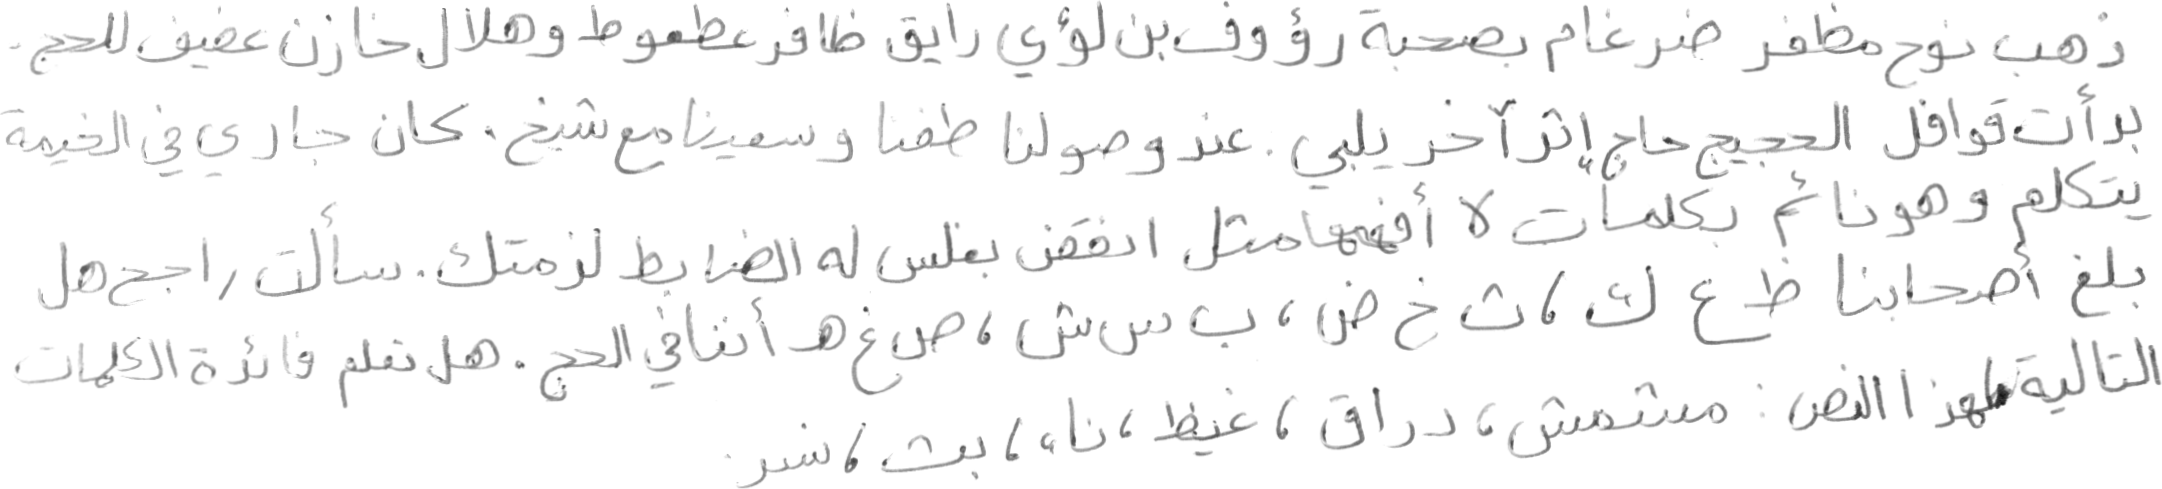 ذهب نوح مظفر ضرغام بصحبة رؤوف بن لؤي رايق ظافر عطعوط وهلال خازن عفيف للحج.
بدأت قوافل الحجيج حاج إثر آخر يلبي. عند وصولنا طفنا وسعينا مع شيخ. كان جاري في الخيمة
يتكلم وهو نائم بكلمات لا أفهمها مثل انفقض بغلس له الضابط لزمتك. سألت راجح هل
بلغ أصحابنا ظ ع ك، ث خ ض، ب س ش، ص غ هـ أننا في الحج. هل تعلم فائدة الكلمات
التالية لهذا النص: مشمش، دراق، غيظ، ناء، بث، نسر.